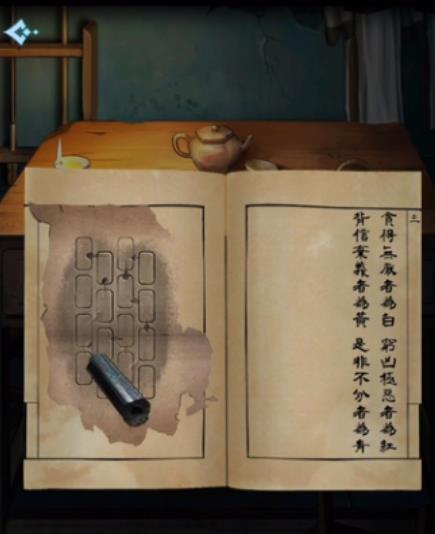 二
貪得無厭者為白 窮凶極惡者為紅
背信棄義者為黃 是非不分者為青